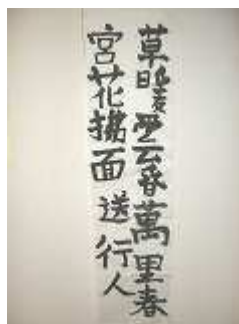 草暖雲昏萬里春
宮花拂面送行人